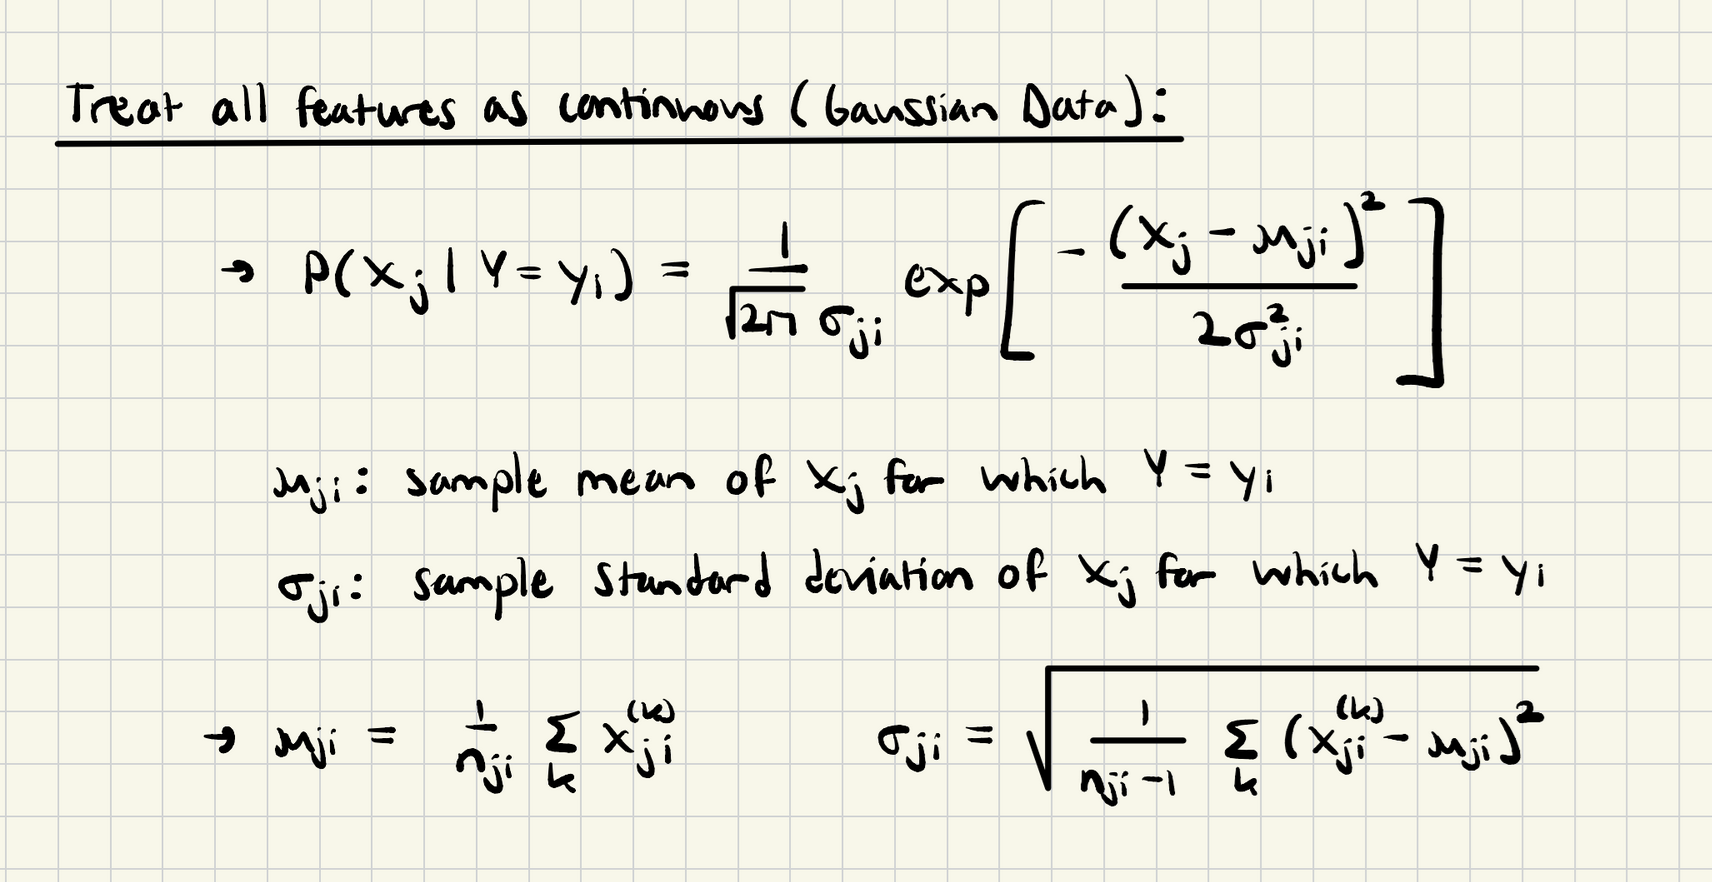 Treat all features as continuous (Gaussian Data):
→ P(x_j | Y = y_i) = 1/(√(2π) σ_ji) exp[ -(x_j - μ_ji)^2 / (2σ_ji^2) ]
μ_ji: sample mean of x_j for which Y = y_i
σ_ji: sample standard deviation of x_j for which Y = y_i
→ μ_ji = 1/n_ji Σ_k x_ji^(k)    σ_ji = √( 1/(n_ji - 1) Σ_k (x_ji^(k) - μ_ji)^2 )